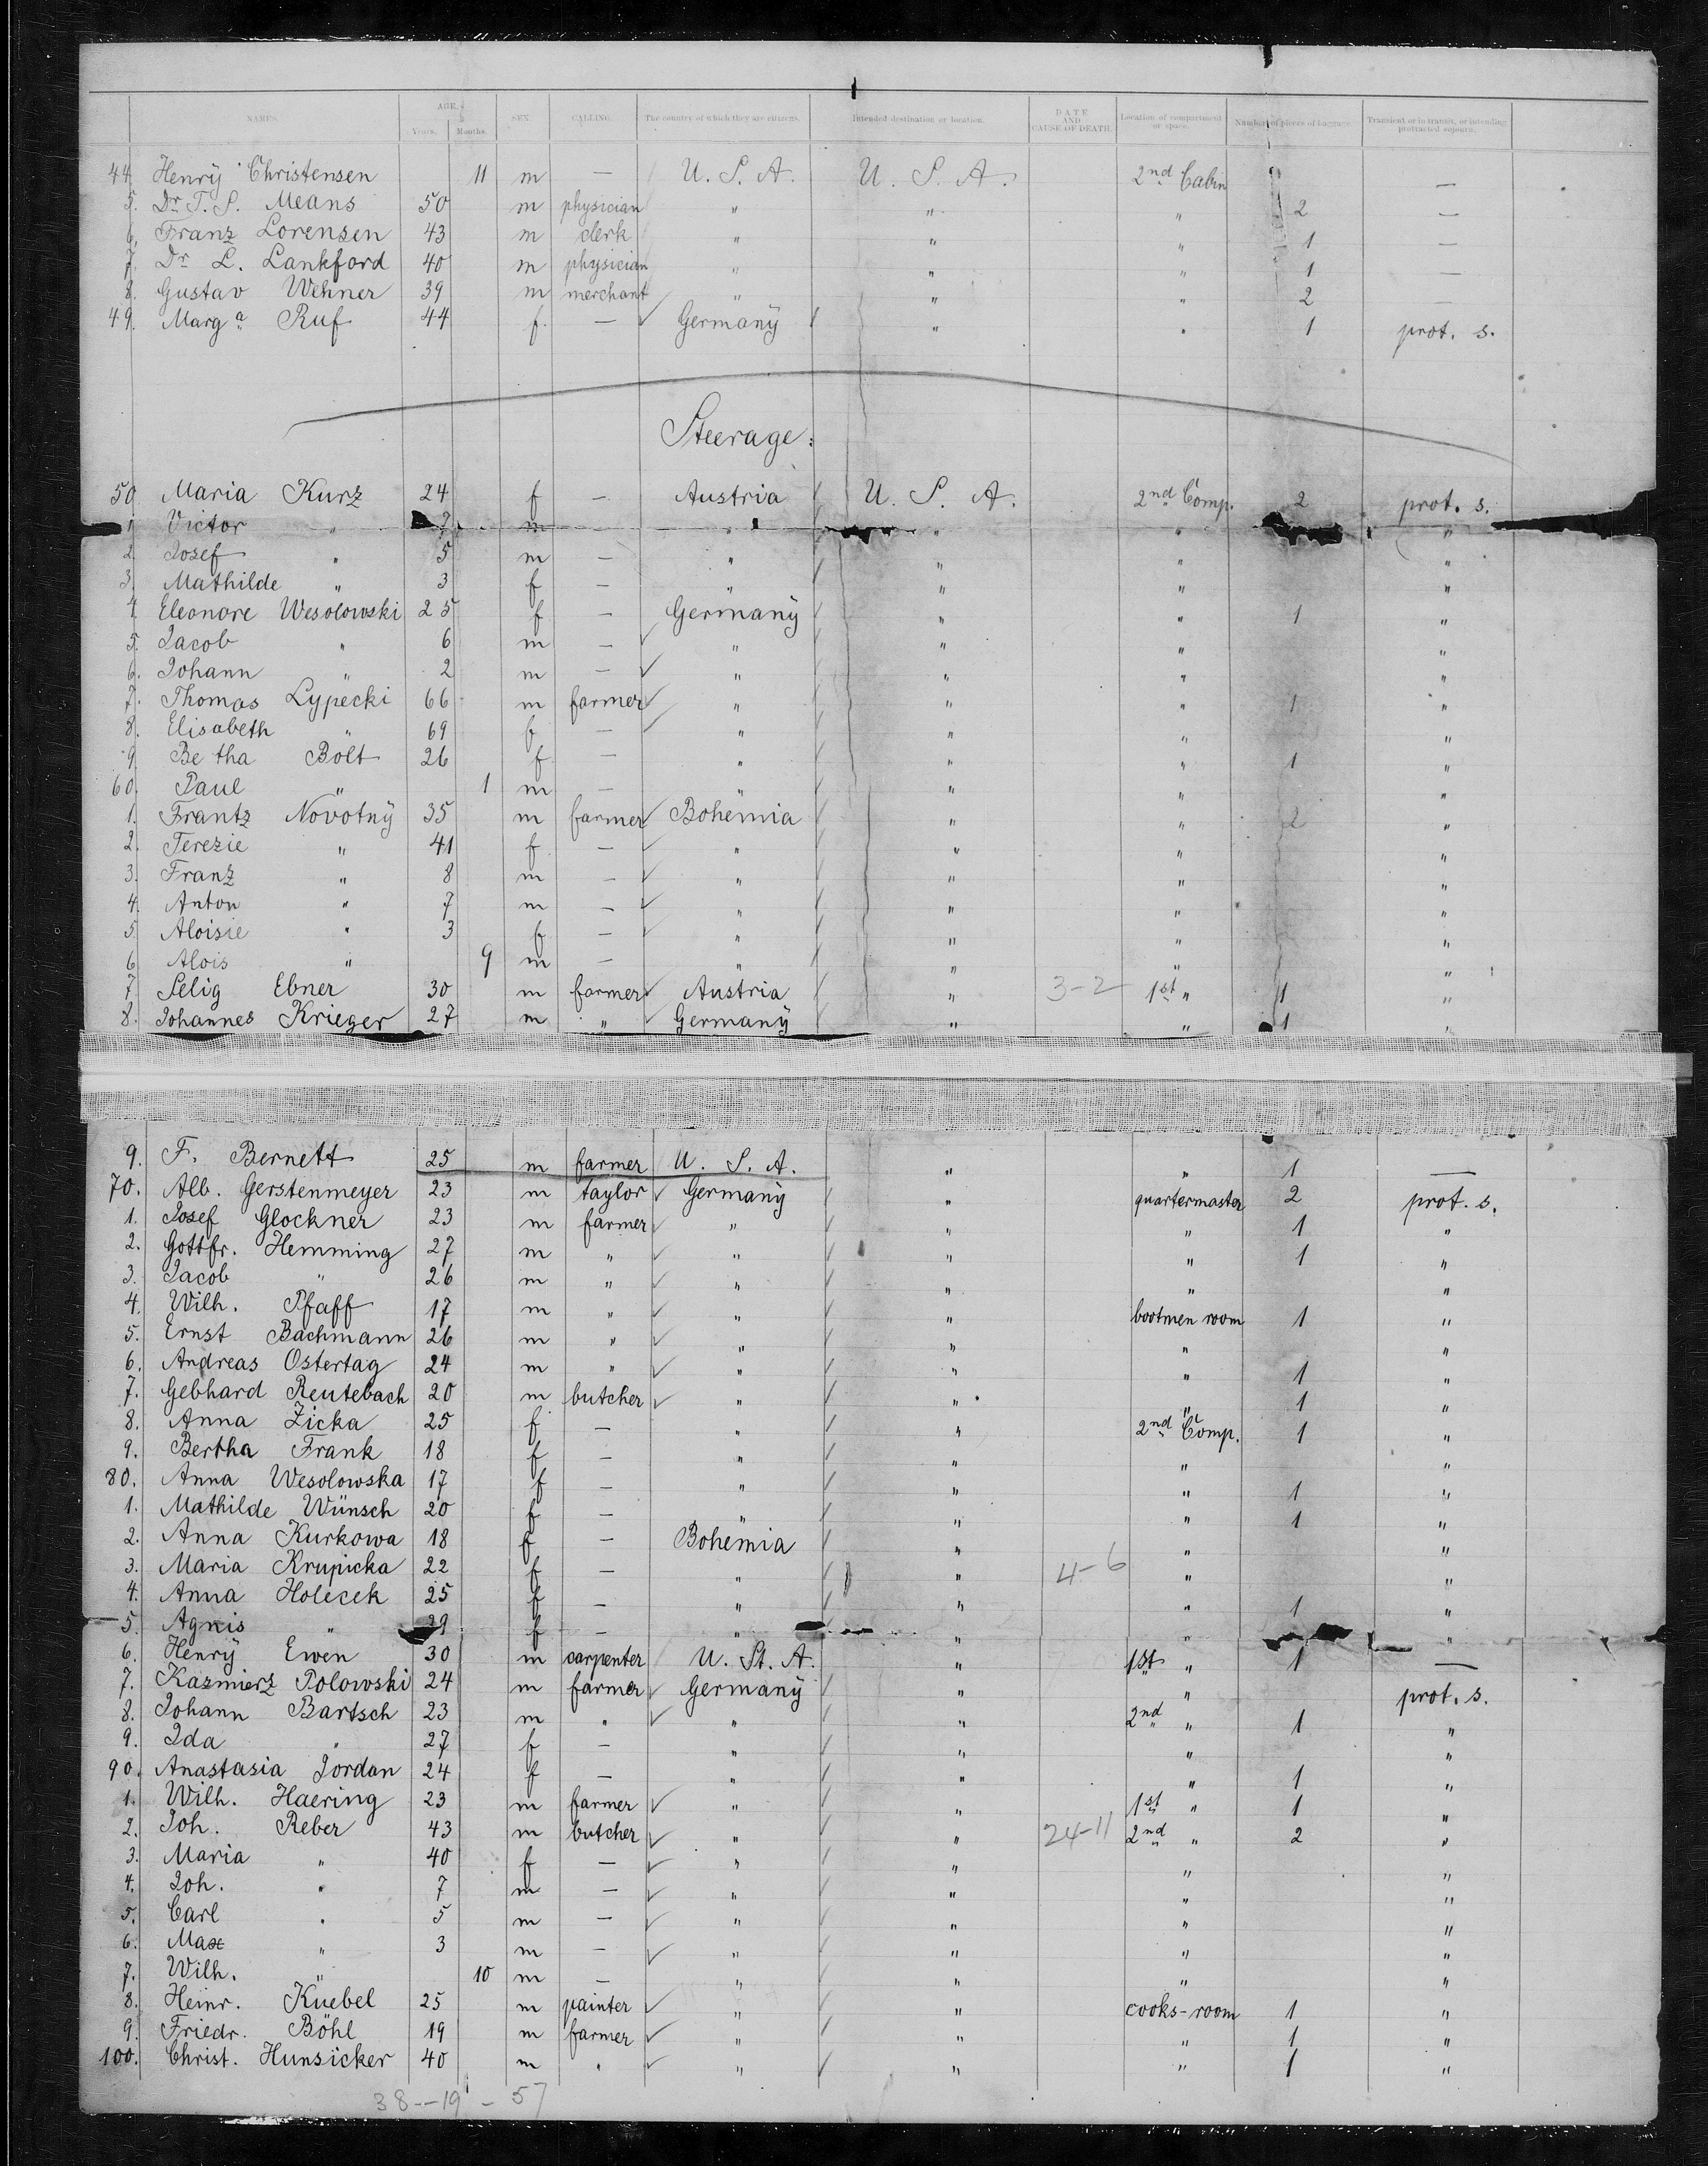 NAMES. AGE. SEX. CALLING. The country of which they are citizens. Intended destination or location. DATE AND CAUSE OF DEATH. Location of compartment or space. Number of pieces of baggage. Transient or in transit, or intending protracted sojourn.
Years. Months.
44. Henry Christensen 11 m — U. S. A. U. S. A. 2nd Cabin —
5. Dr T. S. Means 50 m physician " " " 2 —
6. Franz Lorensen 43 m clerk " " " 1 —
7. Dr L. Lankford 40 m physician " " " 1 —
8. Gustav Wehner 39 m merchant " " " 2 —
49. Marg a Ruf 44 f. — Germany " " 1 prot. s.
Steerage:
50 Maria Kurz 24 f — Austria U. S. A. 2nd Comp. 2 prot. s.
1 Victor " 7 m — " " " "
2. Josef " 5 m — " " " "
3. Mathilde " 3 f — " " " "
4. Eleonore Wesolowski 25 f — Germany " " 1 "
5. Jacob " 6 m — " " " "
6. Johann " 2 m — " " " "
7. Thomas Lypecki 66 m farmer " " " 1 "
8. Elisabeth " 69 f — " " " "
9. Be tha Bolt 26 f — " " " 1 "
60. Paul " 1 m — " " " "
1. Frantz Novotny 35 m farmer Bohemia " " 2 "
2. Terezie " 41 f — " " " "
3. Franz " 8 m — " " " "
4. Anton " 7 m — " " " "
5. Aloisie " 3 f — " " " "
6. Alois " 9 m — " " " "
7. Selig Ebner 30 m farmer Austria " 3-2 1st " 1 "
8. Johannes Krieger 27 m " Germany " " 1 "
9. F. Bernett 25 m farmer U. S. A. " " 1 —
70. Alb. Gerstenmeyer 23 m taylor Germany " quartermaster 2 prot. s.
1. Josef Glockner 23 m farmer " " " 1 "
2. Gottfr. Hemming 27 m " " " " 1 "
3. Jacob " 26 m " " " " "
4. Wilh. Pfaff 17 m " " " bootmen room 1 "
5. Ernst Bachmann 26 m " " " " "
6. Andreas Ostertag 24 m " " " " 1 "
7. Gebhard Reutebach 20 m butcher " " " 1 "
8. Anna Zicka 25 f — " " 2nd Comp. 1 "
9. Bertha Frank 18 f — " " " "
80. Anna Wesolowska 17 f — " " " 1 "
1. Mathilde Wünsch 20 f — " " " 1 "
2. Anna Kurkowa 18 f — Bohemia " " "
3. Maria Krupicka 22 f — " " 4-6 " "
4. Anna Holecek 25 f — " " " 1 "
5. Agnis " 29 f — " " " "
6. Henry Ewen 30 m carpenter U. St. A. " 1st " 1 —
7. Kazmierz Polowski 24 m farmer Germany " " prot. s.
8. Johann Bartsch 23 m " " " 2nd " 1 "
9. Ida " 27 f — " " " "
90. Anastasia Jordan 24 f — " " " 1 "
1. Wilh. Haering 23 m farmer " " 1st " 1 "
2. Joh. Reber 43 m butcher " " 24-11 2nd " 2 "
3. Maria " 40 f — " " " "
4. Joh. " 7 m — " " " "
5. Carl " 5 m — " " " "
6. Max " 3 m — " " " "
7. Wilh. " 10 m — " " " "
8. Heinr. Kuebel 25 m painter " " cooks-room 1 "
9. Friedr. Böhl 19 m farmer " " " 1 "
100. Christ. Hunsicker 40 m " " " " 1 "
38--19-57